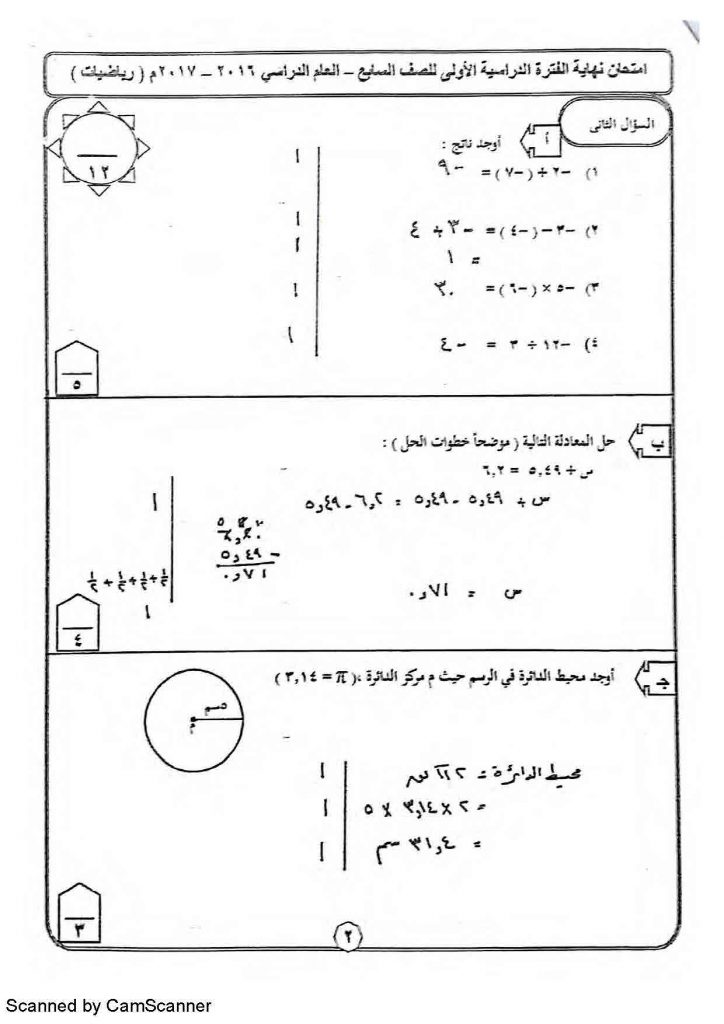 امتحان نهاية الفترة الدراسية الأولى للصف السابع – العام الدراسي ٢٠١٦ – ٢٠١٧م ( رياضيات )
السؤال الثانى
١٢
أ
أوجد ناتج :
١) –٢ + (–٧) = –٩
١
٢) –٣ – (–٤) = –٣ + ٤
١
= ١
١
٣) –٥ × (–٦) = ٣٠
١
٤) –١٢ ÷ ٣ = –٤
١
٥
ب
حل المعادلة التالية ( موضحاً خطوات الحل ) :
س + ٥,٤٩ = ٦,٢
س + ٥,٤٩ – ٥,٤٩ = ٦,٢ – ٥,٤٩
١
٦,٢٠
– ٥,٤٩
٠,٧١
س = ٠,٧١
١/٢ + ١/٢ + ١/٢ + ١/٢
١
٤
جـ
أوجد محيط الدائرة في الرسم حيث م مركز الدائرة ، ( π = ٣,١٤ )
٥سم
م
محيط الدائرة = ٢ π نق
١
= ٢ × ٣,١٤ × ٥
١
= ٣١,٤ سم
١
٣
٢
Scanned by CamScanner